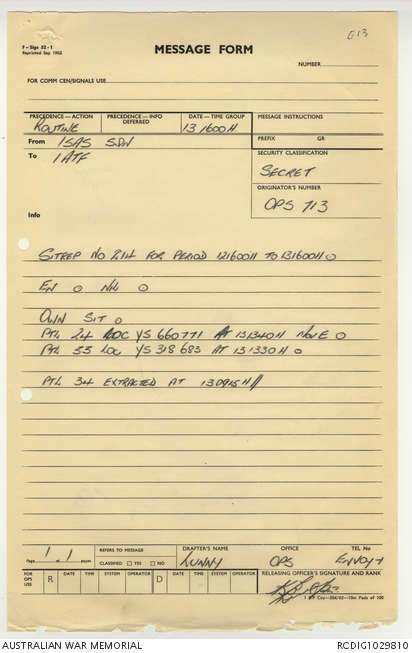 613
F-Sigs 52-1
Reprinted Sep 1962
MESSAGE FORM
NUMBER
FOR COMM CEN/SIGNALS USE
PRECEDENCE — ACTION
ROUTINE
PRECEDENCE — INFO
DEFERRED
DATE — TIME GROUP
131600H
MESSAGE INSTRUCTIONS
From 1SAS SQN
PREFIX GR
To 1ATF
SECURITY CLASSIFICATION
SECRET
ORIGINATOR'S NUMBER
OPS 713
Info
SITREP NO 214 FOR PERIOD 121600H TO 131600H O
EN O NIL O
OWN SIT O
PTL 24 LOC YS 660771 AT 131340H O
PTL 33 LOC YS 318683 AT 131330H O
PTL 34 EXTRACTED AT 130915H//
Page 1 of 1 pages
REFERS TO MESSAGE
CLASSIFIED YES NO
DRAFTER'S NAME
LUNNY
OFFICE
OPS
TEL No
ENVOY
FOR OPS USE
R DATE TIME SYSTEM OPERATOR D DATE TIME SYSTEM OPERATOR
RELEASING OFFICER'S SIGNATURE AND RANK
AUSTRALIAN WAR MEMORIAL
RCDIG1029810